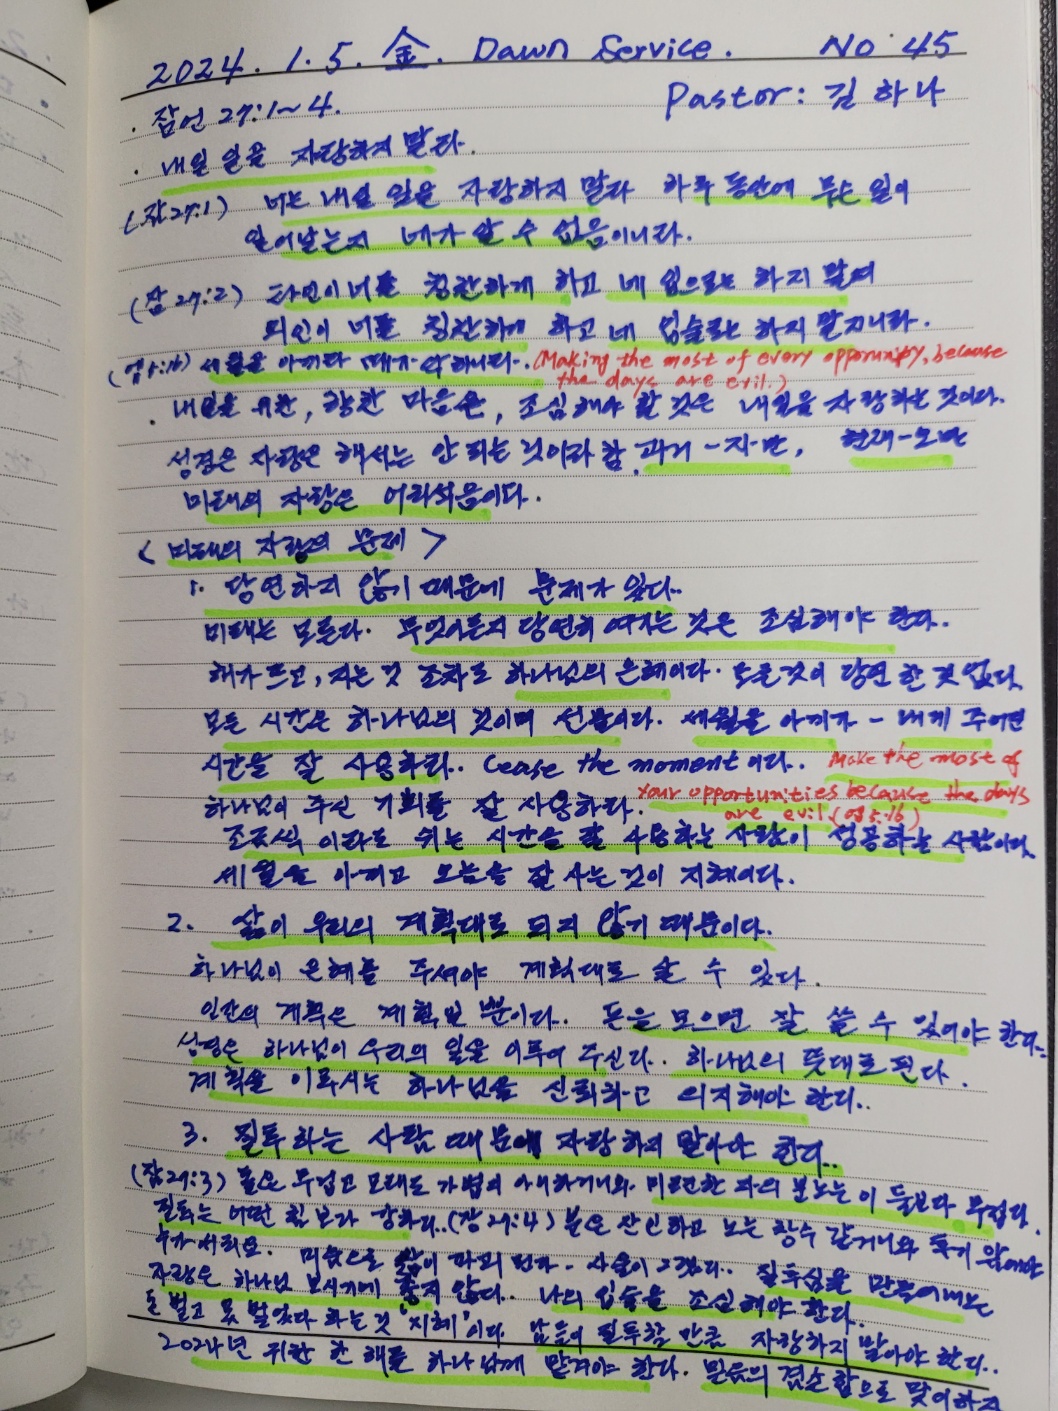 2024. 1. 5. 金. Dawn Service. No 45
· 잠언 27:1~4. Pastor: 김하나
· 내일 일을 자랑하지 말라.
(잠27:1) 너는 내일 일을 자랑하지 말라 하루 동안에 무슨 일이
일어날는지 네가 알 수 없음이니라.
(잠 27:2) 타인이 너를 칭찬하게 하고 네 입으로는 하지 말며
외인이 너를 칭찬하게 하고 네 입술로는 하지 말지니라.
(엡5:16) 세월을 아끼라 때가 악하니라. (Making the most of every opportunity, because
the days are evil.)
· 내일을 위한, 향한 마음은, 조심해야 할 것은 내일을 자랑하는 것이다.
성경은 자랑은 해서는 안 되는 것이라 함. 과거-자만, 현재-오만
미래의 자랑은 어리석음이다.
< 미래의 자랑의 문제 >
1. 당연하지 않기 때문에 문제가 있다.
미래는 모른다. 무엇이든지 당연히 여기는 것은 조심해야 한다.
해가 뜨고, 지는 것 조차도 하나님의 은혜이다. 모든것이 당연 한 것 없다.
모든 시간은 하나님의 것이며 선물이다. 세월을 아끼라 - 내게 주어진
시간을 잘 사용하라. Cease the moment 이다. Make the most of
하나님이 주신 기회를 잘 사용하다. your opportunities because the days
are evil (엡 5:16)
조금씩 이라도 쉬는 시간을 잘 사용하는 사람이 성공하는 사람이다.
세월을 아끼고 오늘을 잘 사는 것이 지혜이다.
2. 삶이 우리의 계획대로 되지 않기 때문이다.
하나님이 은혜를 주셔야 계획대로 살 수 있다.
인간의 계획은 계획일 뿐이다. 돈을 모으면 잘 쓸 수 있어야 한다.
성령은 하나님이 우리의 일을 이루어 주신다. 하나님의 뜻대로 된다.
계획을 이루시는 하나님을 신뢰하고 의지해야 한다.
3. 질투하는 사람 때문에 자랑하지 말아야 한다.
(잠27:3) 돌은 무겁고 모래도 가볍지 아니하거니와 미련한 자의 분노는 이 둘보다 무겁다.
질투는 어떤 힘 보다 강하다. (잠 27:4) 분은 잔인하고 노는 창수 같거니와 투기 앞에야
누가 서리요. 미움으로 삶이 파괴 된다. 사울이 그랬다. 질투심을 만들어내는
자랑은 하나님 보시기에 좋지 않다. 나의 입술을 조심해야 한다.
돈 벌고 못 벌었다 하는 것 "지혜"이다. 남들이 질투할 만큼 자랑하지 말아야 한다.
2024년 귀한 한 해를 하나님께 맡겨야 한다. 믿음의 겸손함으로 맞이하자